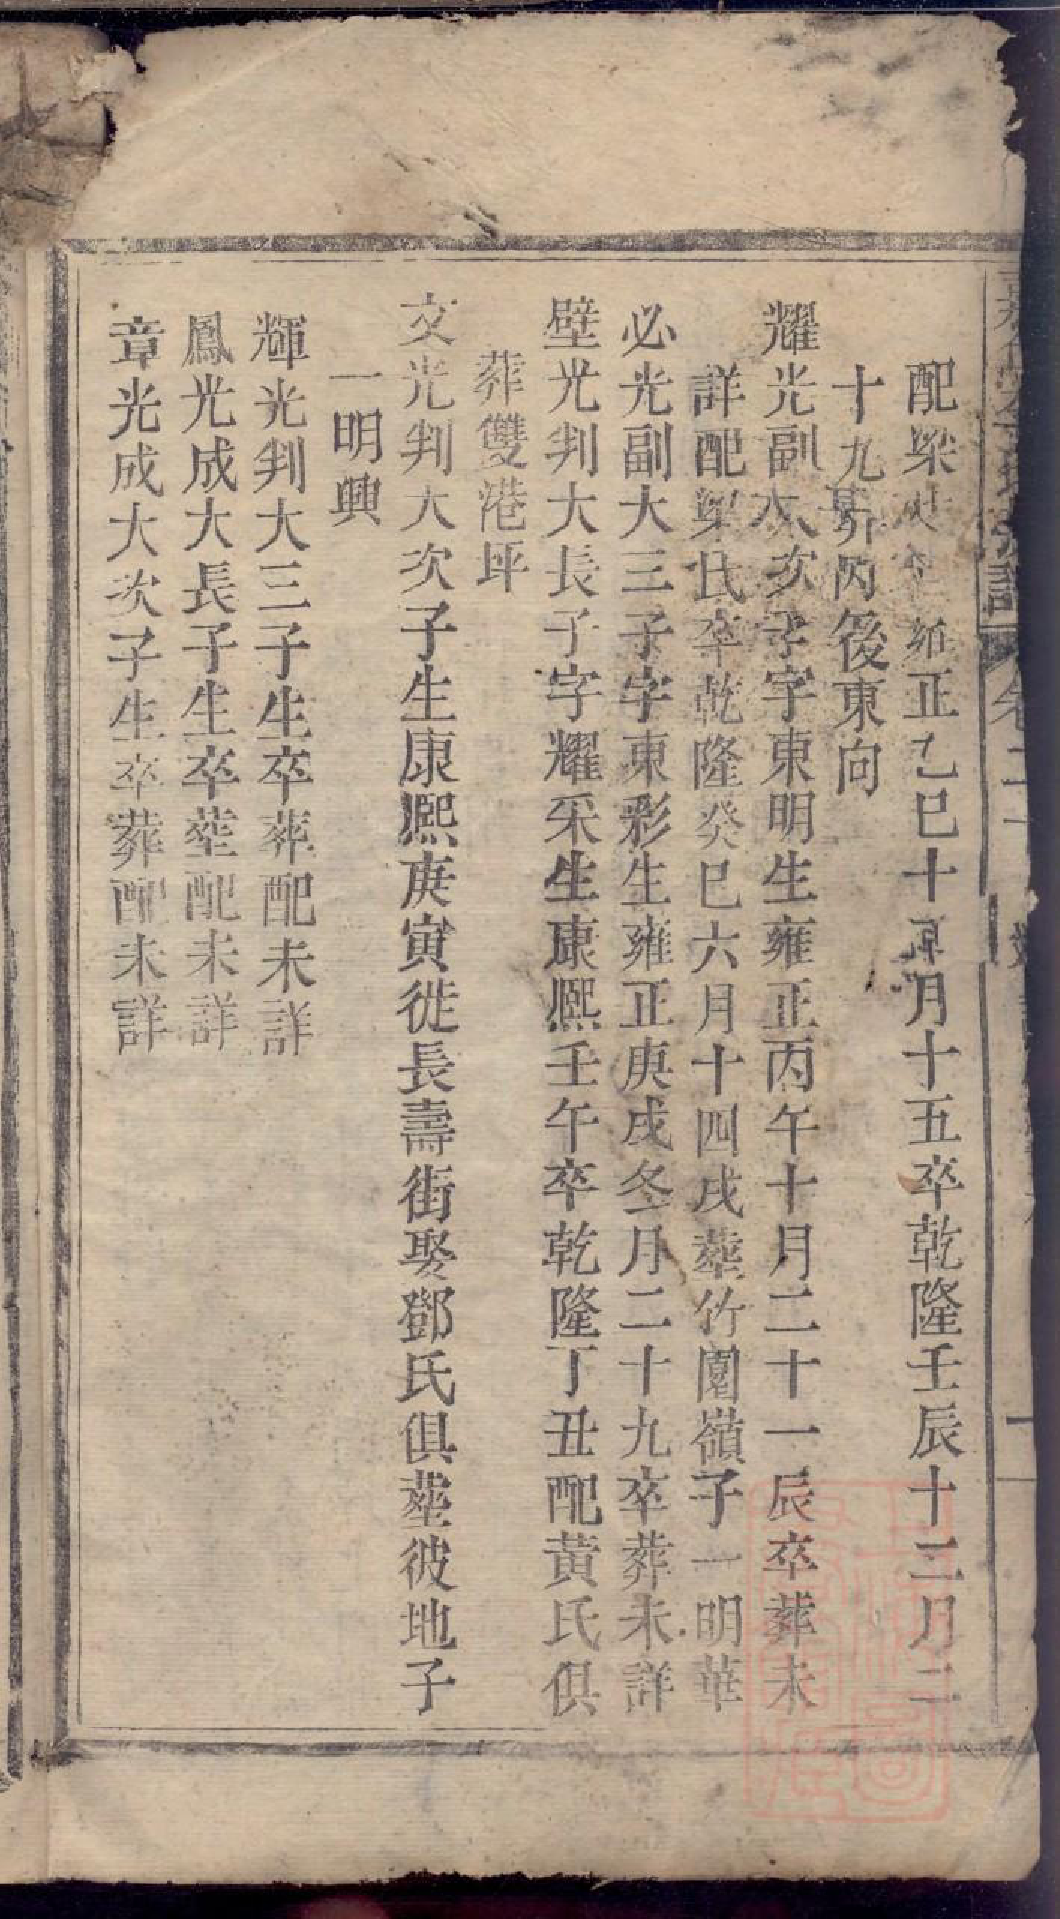 配梁氏生雍正乙巳十月十五卒乾隆壬辰十二月二
十九丙後東向
耀光副大次子字東明生雍正丙午十月二十一辰卒葬未
詳配梁氏卒乾隆癸巳六月十四戌塟竹園嶺子一明華
必光副大三子字東彩生雍正庚戌冬月二十九卒葬未詳
壁光判大長子字耀采生康熙壬午卒乾隆丁丑配黃氏俱
葬雙港坪
文光判大次子生康熙庚寅徙長壽街娶鄧氏俱塟彼地子
一明興
輝光判大三子生卒葬配未詳
鳳光成大長子生卒塟配未詳
章光成大次子生卒葬配未詳